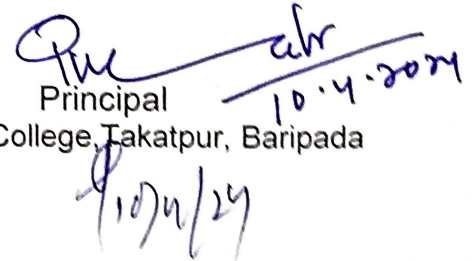 10.4.2024
Principal
College,Takatpur, Baripada
10/4/24